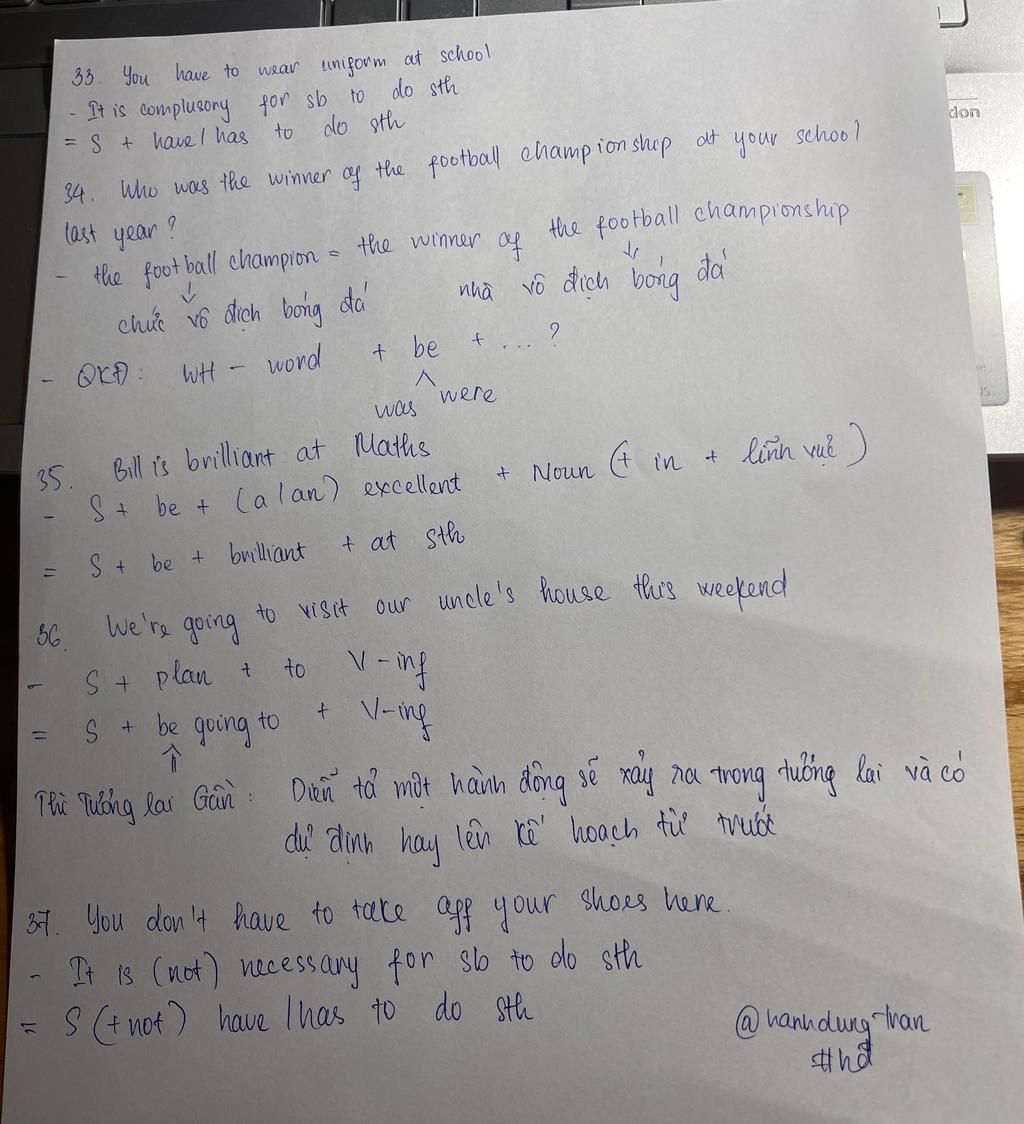 33. You have to wear uniform at school
- It is complusory for sb to do sth
= S + have / has to do sth
34. Who was the winner of the football championship at your school
last year?
- the football champion = the winner of the football championship
↓ ↓
chức vô địch bóng đá nhà vô địch bóng đá
- QKĐ: WH - word + be + ... ?
was were
35. Bill is brilliant at Maths
- S + be + (a / an) excellent + Noun (+ in + lĩnh vực)
= S + be + brilliant + at sth
36. We're going to visit our uncle's house this weekend
- S + plan + to V-ing
= S + be going to + V-ing
⇑
Thì Tương lai Gần: Diễn tả một hành động sẽ xảy ra trong tương lai và có
dự định hay lên kế hoạch từ trước
37. You don't have to take off your shoes here.
- It is (not) necessary for sb to do sth
= S (+ not) have / has to do sth
@hanhdung-tran
#hd
don